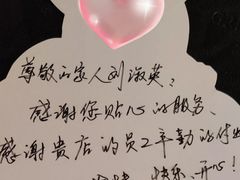 尊敬的家人刘淑英：
感谢您贴心的服务、
感谢贵店的员工辛勤的付出
快乐、开心！